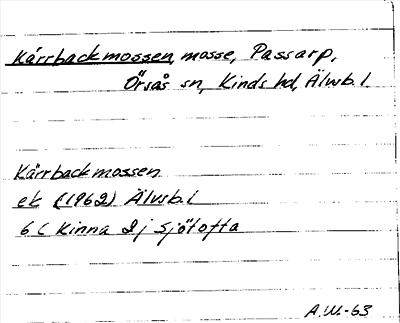 Kärrbackmossen, mosse, Passarp,
Örsås sn, Kinds hd, Älvsb. l.
Kärrbackmossen
ek (1962) Älvsb. l
6 C Kinna 2 j Sjötofta
A.W.-63